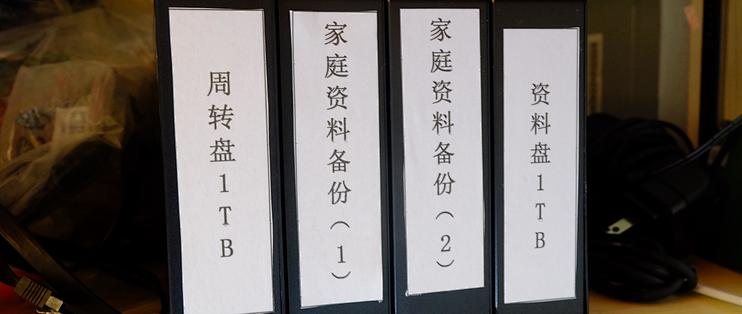 周转盘1TB
家庭资料备份（1）
家庭资料备份（2）
资料盘1TB